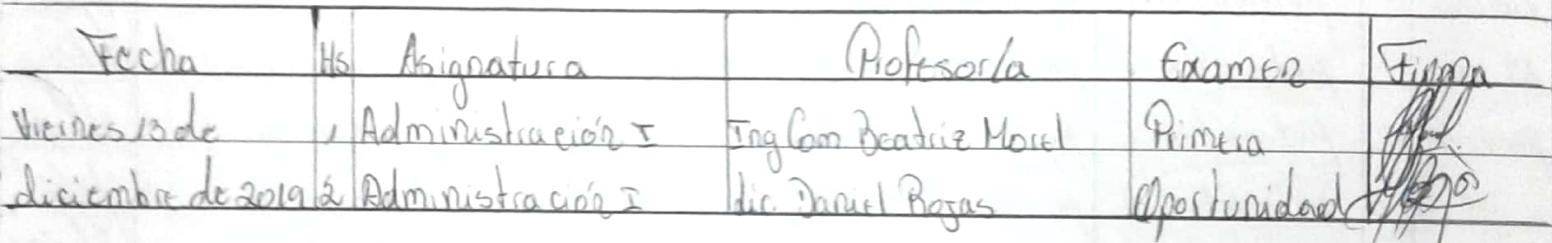 Fecha Hs Asignatura Profesor/a Examen Firma
Viernes 13 de 1 Administración I Ing Com Beatriz Morel Primera
diciembre de 2019 2 Administración I Lic. Daniel Rojas Oportunidad